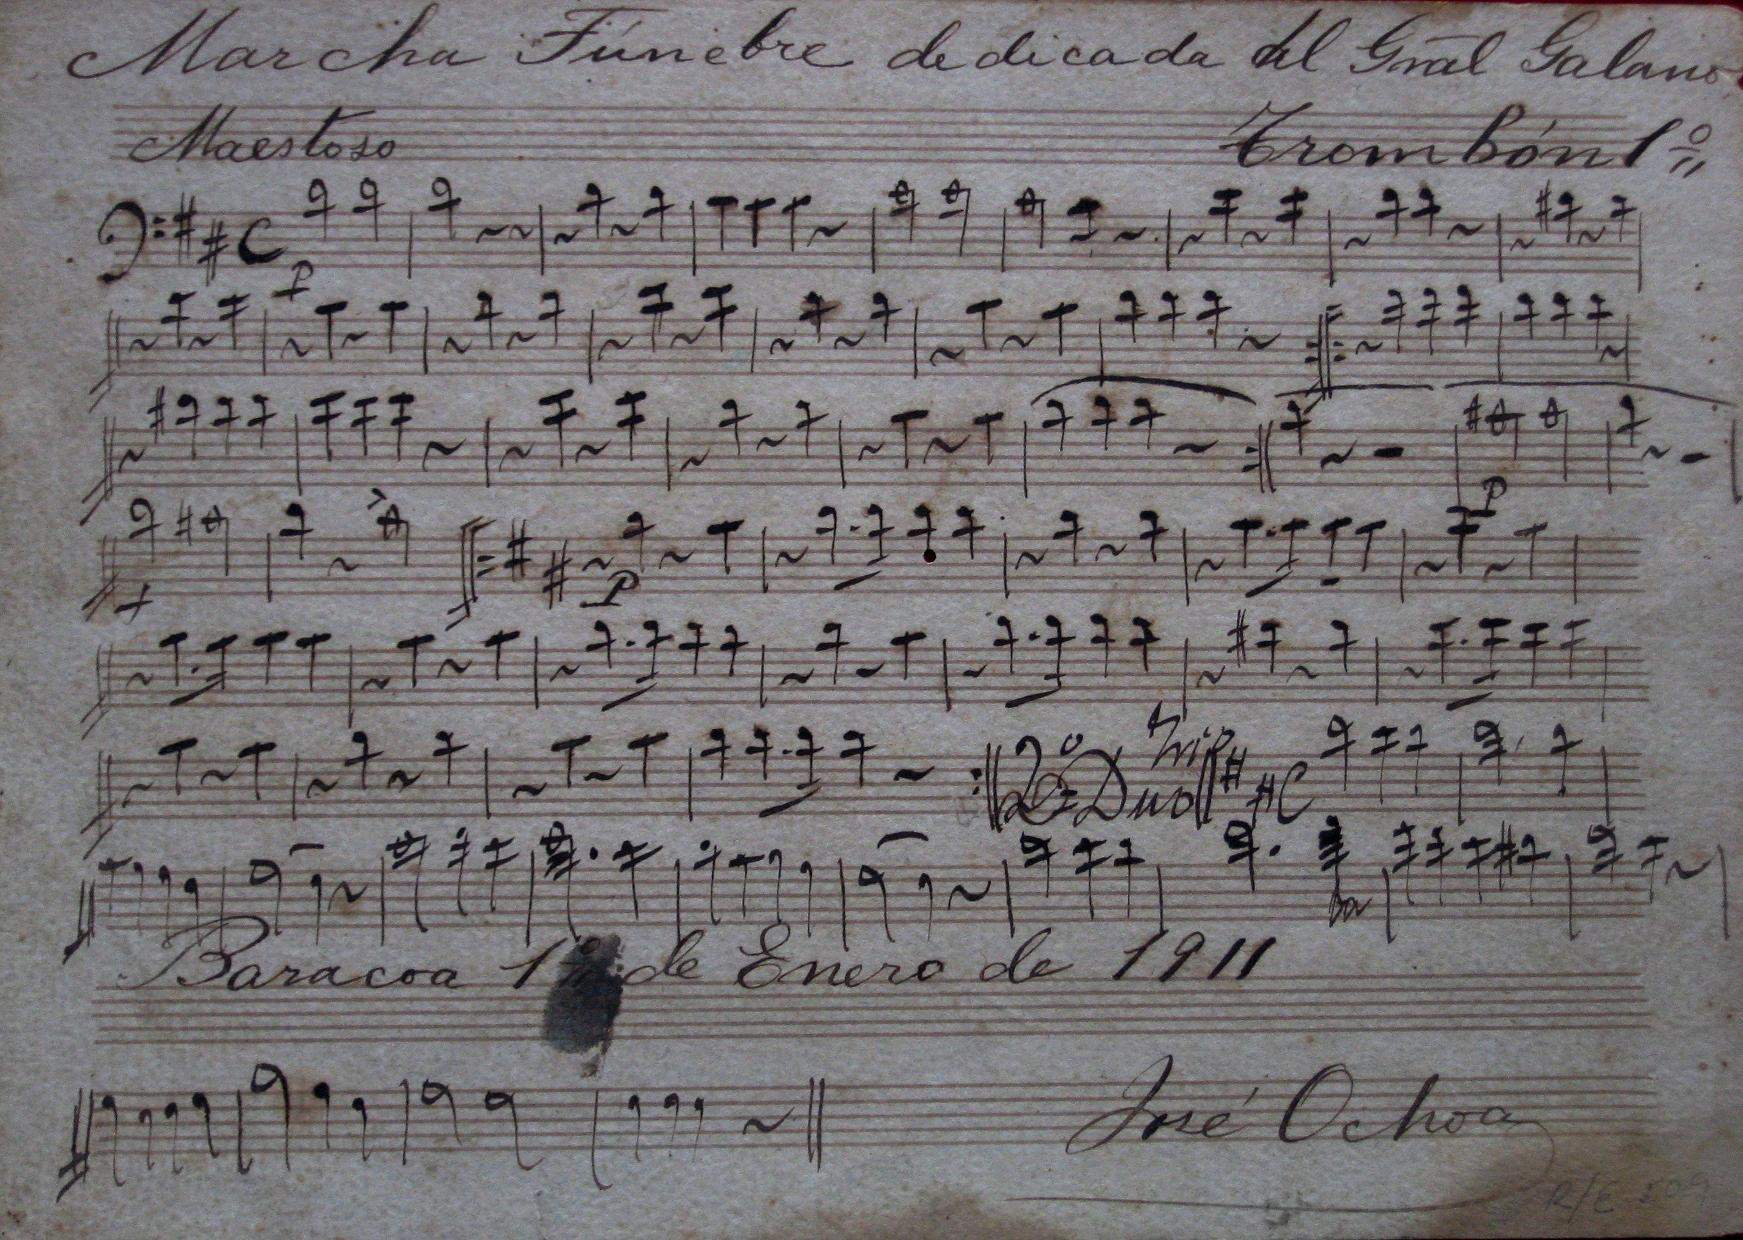 Marcha Fúnebre dedicada al Gra̅l Galano
Maestoso Trombón 1º
P
P
P
2º Duo Trio
Baracoa de Enero de 1911
José Ochoa
R/E 509